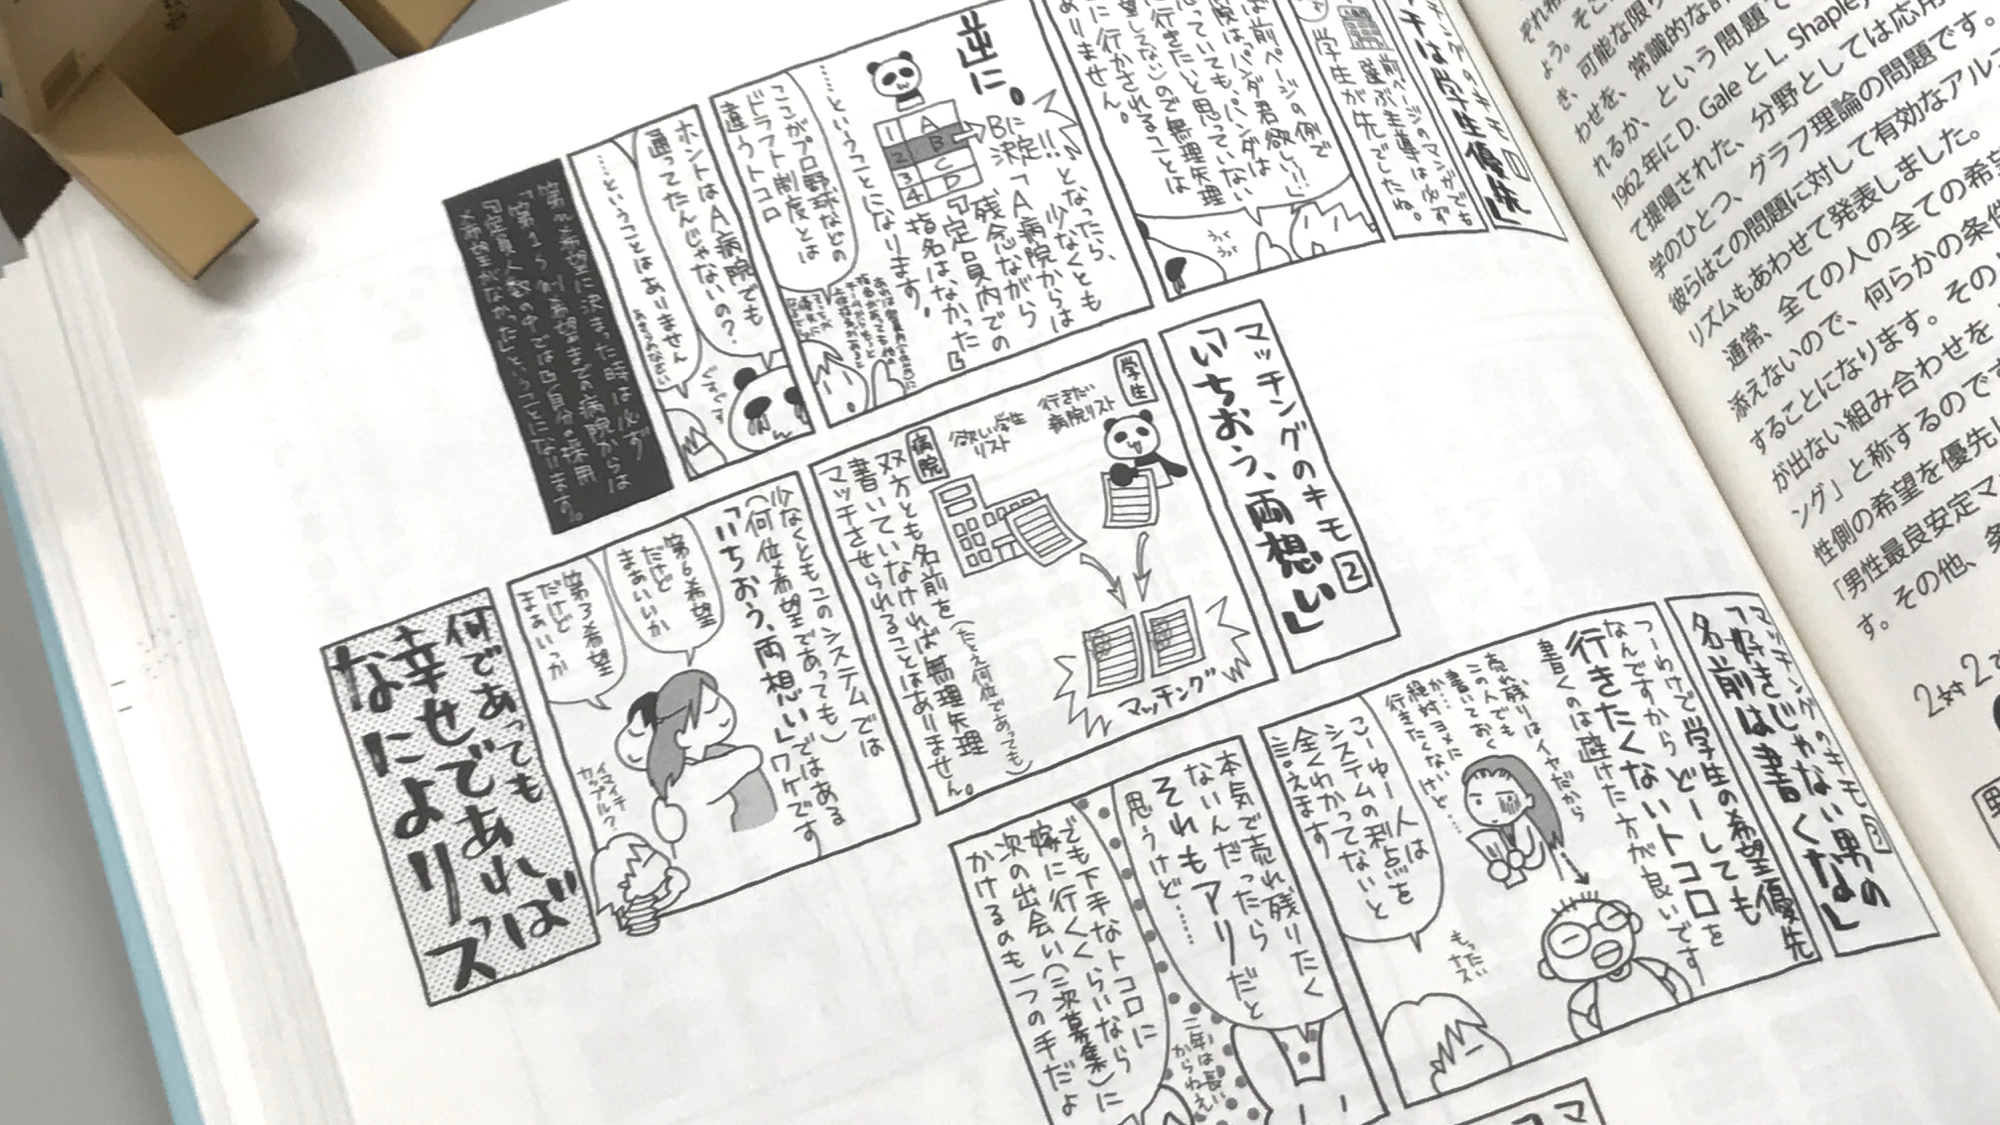 マッチングのキモ1
学生優先」
前ページのマンガでも
選ぶ主導は必ず
学生が先でしたね。
は前ページの例で
「パンダ君欲しい!!」
思っていても、パンダは
に行きたいと思っていない
望してない)ので無理矢理
に行かされることは
ありません。
逆に。
1 A
2 B
3 C
4 D
Bに
決定!!
となったら、
少なくとも
「A病院からは
残念ながら
『定員内での
指名はなかった』」
……ということになります。
ここがプロ野球などの
ドラフト制度とは
違うトコロ
ホントはA病院でも
通ってたんじゃないの?
ぐすぐす
……ということはありません
第n希望に決まった時は必ず
「第1〜n-1希望までの病院からは
『定員人数の中では自分の採用
希望がなかった』ということになります。
マッチングのキモ2
「いちおう、両想い」
学生
行きたい
病院リスト
病院
欲しい学生
リスト
マッチング
双方とも名前を(たとえ何位であっても)
書いていなければ無理矢理
マッチさせられることはありません。
少なくともこのシステムでは
(何位希望であっても)
「いちおう、両想い」ではある
ワケです
第6希望
だけど
まあいいか
第3希望
だけど
まあいっか
イマイチ
カップル?
何であっても
幸せであれば
なによりっス
マッチングのキモ3
「好きじゃない男の
名前は書くな」
つーわけで学生の希望優先
なんですからどーしても
行きたくないトコロを
書くのは避けた方が良いです
売れ残りはイヤだから
この人でも
書いておく
か…絶対ヨメに
行きたくないけど……
もったい
ナス
こーゆー人は
システムの利点を
全くわかってないと
言えます
本気で売れ残りたく
ないんだったら
それもアリだと
思うけど……
でも下手なトコロに
嫁に行くくらいなら
次の出会い(二次募集)に
かけるのも一つの手だよ
二年は長い
からねえ
可能な限り
常識的な
という問題で
1962年にD. GaleとL. Shapley
て提唱された、分野としては応用
学のひとつ、グラフ理論の問題です。
彼らはこの問題に対して有効なアルゴ
リズムもあわせて発表しました。
通常、全ての人の全ての希望
添えないので、何らかの条件
することになります。その
が出ない組み合わせを
ング」と称するのです
性側の希望を優先し
「男性最良安定マ
す。その他、条
2対2で